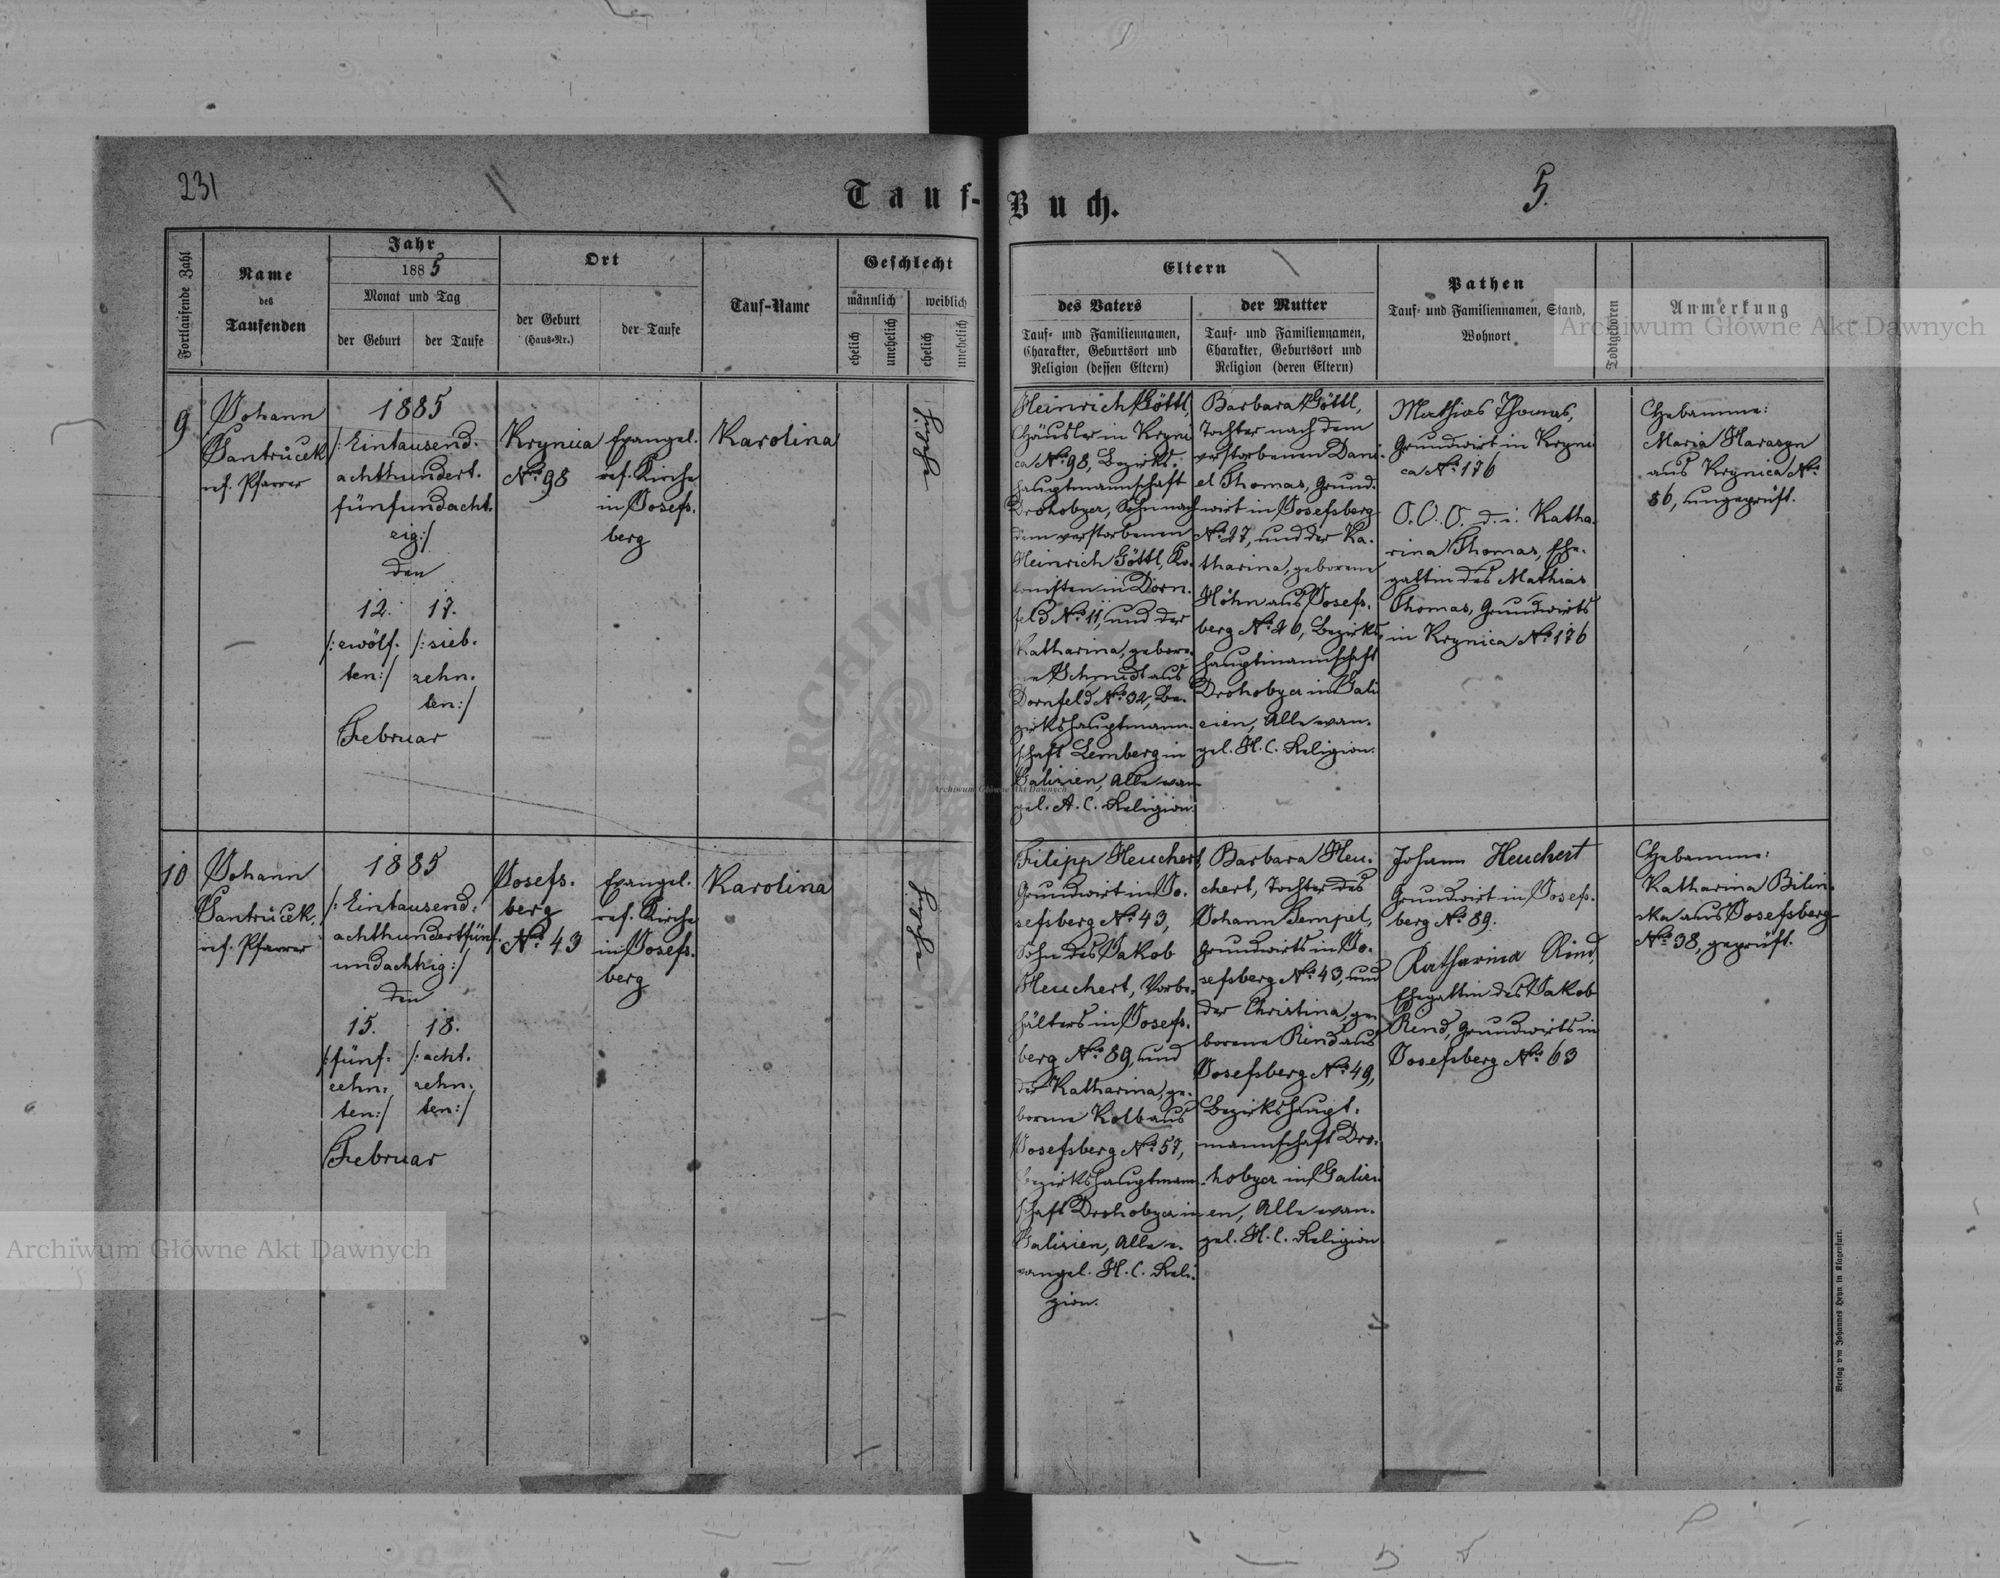 231
5.
Tauf-Buch.
Fortlaufende Zahl
Name
des
Taufenden
Jahr
1885
Monat und Tag
der Geburt
der Taufe
Ort
der Geburt
(Haus-Nr.)
der Taufe
Tauf-Name
Geschlecht
männlich
weiblich
ehelich
unehelich
ehelich
unehelich
Eltern
des Vaters
Tauf- und Familiennamen,
Charakter, Geburtsort und
Religion (dessen Eltern)
der Mutter
Tauf- und Familiennamen,
Charakter, Geburtsort und
Religion (deren Eltern)
Pathen
Tauf- und Familiennamen, Stand,
Wohnort
Todtgeboren
Anmerkung
9
Johann
Jantrucek
ref. Pfarrer
1885
/: Eintausend-
achthundert-
fünfundacht-
zig :/
den
12.
/: zwölf-
ten :/
17.
/: sieb-
zehn-
ten :/
Februar
Krynica
No. 98
Evangel.
ref. Kirche
in Josefs-
berg
Karolina
Heinrich Göttl,
Häusler in Kryni
ca No. 98, Bezirks-
hauptmannschaft
Drohobycz, Sohn nach
dem verstorbenen
Heinrich Göttl, Ko-
lonisten in Dorn-
feld No. 11, und der
Katharina, gebore-
ne Schmidt aus
Dornfeld No. 32, Be-
zirkshauptmann-
schaft Lemberg in
Galizien, Alle evan
gel. A. C. Religion.
Barbara Göttl,
Tochter nach dem
verstorbenen Dani-
el Thomas, Grund-
wirt in Josefsberg
No. 27, und der Ka-
tharina, geborene
Höhn aus Josefs-
berg No. 26, Bezirks-
hauptmannschaft
Drohobycz in Gali
zien, Alle evan-
gel. H. C. Religion.
Mathias Thomas,
Grundwirt in Kryni
ca No. 176
O. O. O. d. i. Katha-
rina Thomas, Ehe-
gattin des Mathias
Thomas, Grundwirts
in Krynica No. 176
Hebamme:
Maria Harasyn
aus Krynica No.
86, ungeprüft.
10
Johann
Jantrucek,
ref. Pfarrer
1885
/: Eintausend-
achthundertfünf-
undachtzig :/
den
15.
/: fünf-
zehn-
ten :/
18.
/: acht-
zehn-
ten :/
Februar
Josefs-
berg
No. 43
Evangel.
ref. Kirche
in Josefs-
berg
Karolina
Filipp Heuchert,
Grundwirt in Jo-
sefsberg No. 43,
Sohn des Jakob
Heuchert, Vorbe-
hälters in Josefs-
berg No. 89, und
der Katharina, ge-
borene Kolb aus
Josefsberg No. 57,
Bezirkshauptmann-
schaft Drohobycz in
Galizien, Alle e-
vangel. H. C. Reli-
gion.
Barbara Heu-
chert, Tochter des
Johann Tempel,
Grundwirts in Jo-
sefsberg No. 43, und
der Christina, ge-
borene Rind aus
Josefsberg No. 49,
Bezirkshaupt-
mannschaft Dro-
hobycz in Galizi-
en, Alle evan-
gel. H. C. Religion
Johann Heuchert
Grundwirt in Josefs-
berg No. 89.
Katharina Rind,
Ehegattin des Jakob
Rind, Grundwirts in
Josefsberg No. 63
Hebamme:
Katharina Bilin-
ska aus Josefsberg
No. 38, geprüft.
Verlag von Johannes Heyn in Klagenfurt.
Archiwum Główne Akt Dawnych
Archiwum Główne Akt Dawnych
Archiwum Główne Akt Dawnych